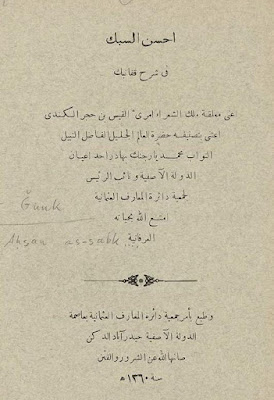 احسن السبك
فى شرح قفانبك
على معلقة ملك الشعراء امرئ القيس بن حجر الكندى
اعتنى بتصنيفه حضرة العالم الجليل الفاضل النبيل
النواب محمد يار جنك بهادر احد اعيان
الدولة الآصفية ونائب الرئيس
لجمعية دائرة المعارف العثمانية
امتع الله بحياته
العرفانية
Ǧunk
Aḥsan as-sabk
وطبع بأمر جمعية دائرة المعارف العثمانية بعاصمة
الدولة الآصفية حيدرآباد الدكن
صانها الله عن الشرور والفتن
سنة ١٣٦٠ ھ